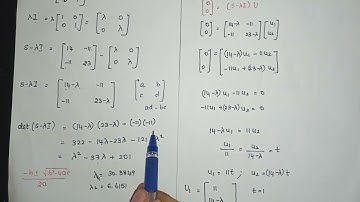 λI = λ [1 0 0 1] = [λ 0 0 λ]
S-λI = [14 -11 -11 23] - [λ 0 0 λ]
S-λI = [14-λ -11 -11 23-λ] [a b c d]
ad-bc
det(S-λI) = (14-λ)(23-λ) - (-11)(-11)
= 322 - 14λ - 23λ - 121 λ²
= λ² - 37λ + 201
-b ± √b²-4ac
2a
λ₁ = 30.3849
λ₂ = 6.6151
[0 0] = (S-λI) U
[0 0] = [14-λ -11 -11 23-λ] [u₁ u₂]
[0 0] = [(14-λ)u₁ - 11u₂ -11u₁ + (23-λ)u₂]
(14-λ)u₁ - 11u₂ = 0
-11u₁ + (23-λ)u₂ = 0
14-λ u₁ = 11u₂
u₁/11 = u₂/14-λ = t
u₁ = 11t, u₂ = (14-λ)t
U₁ = [11 14-λ] t=1